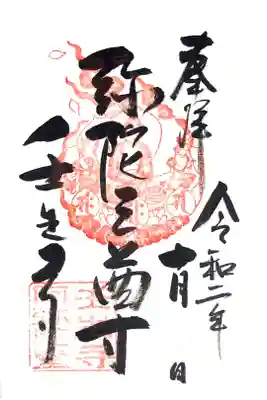 奉拝
令和二年
十月 日
弥陀三尊
壬生寺